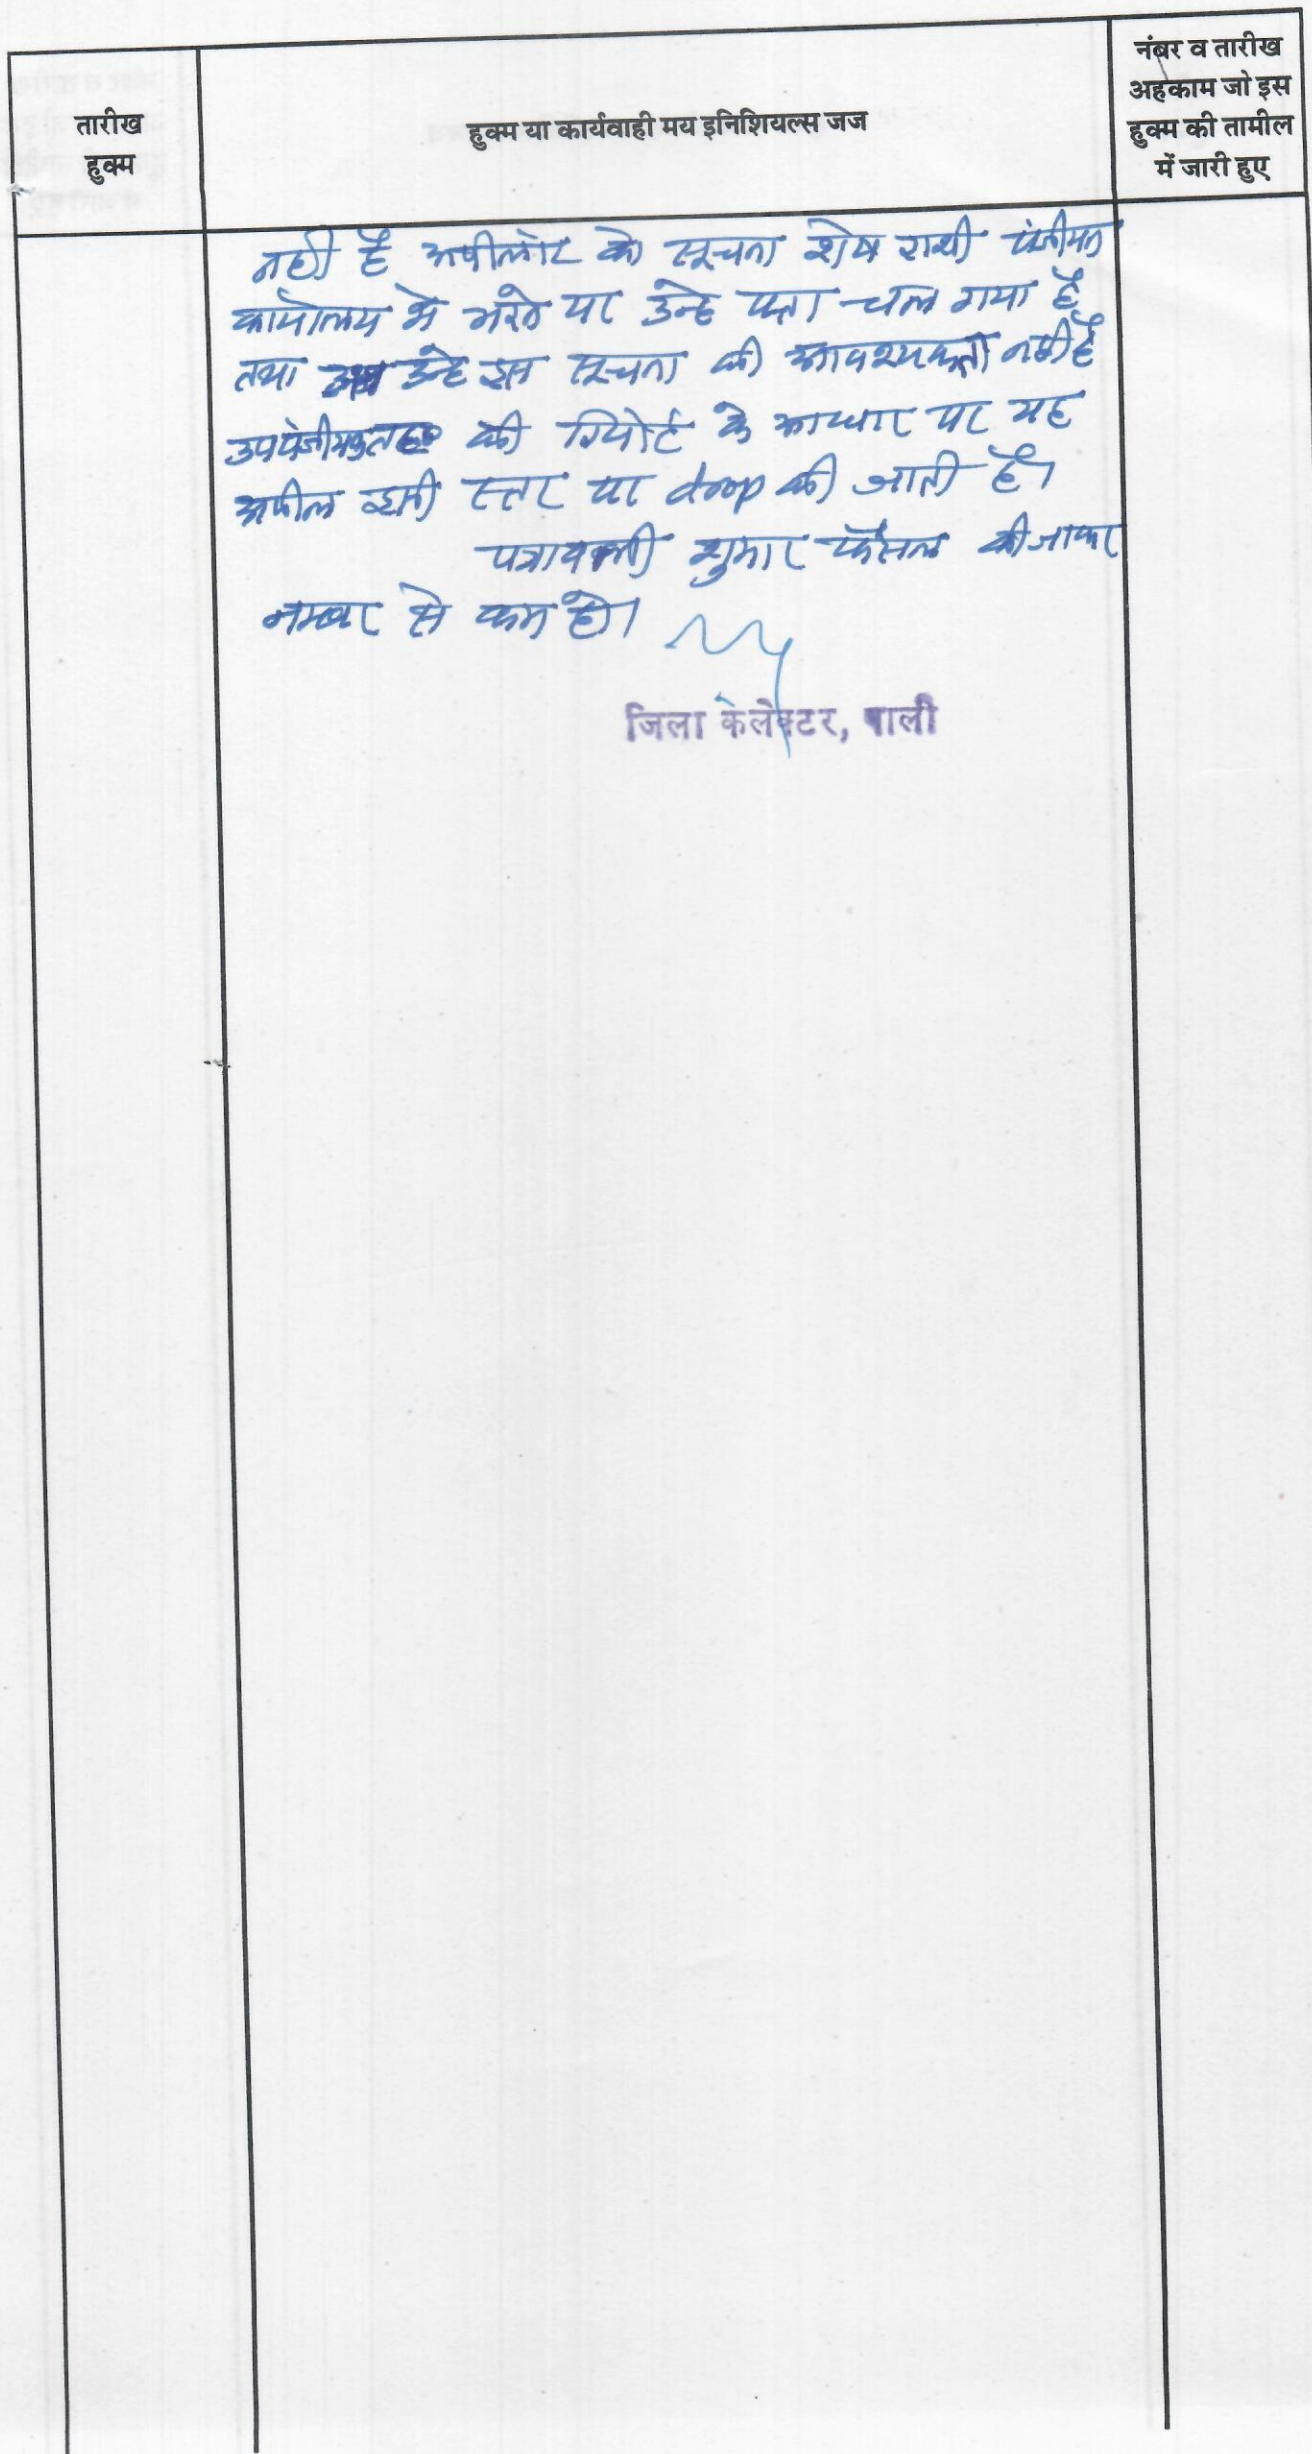 तारीख
हुक्म
हुक्म या कार्यवाही मय इनिशियल्स जज
नंबर व तारीख
अहकाम जो इस
हुक्म की तामील
में जारी हुए
नही है अपीलांट को सूचना शेष राशी पंजीयन
कार्यालय मे भरने पर उन्हे पता चल गया है
तथा अब उन्हे इस सूचना की आवश्यकता नही है
की रिपोर्ट के आधार पर यह
अपील इसी स्तर पर drop की जाती है।
पत्रावली शुमार फैसल की जाकर
नम्बर से कम हो।
जिला कलेक्टर, पाली